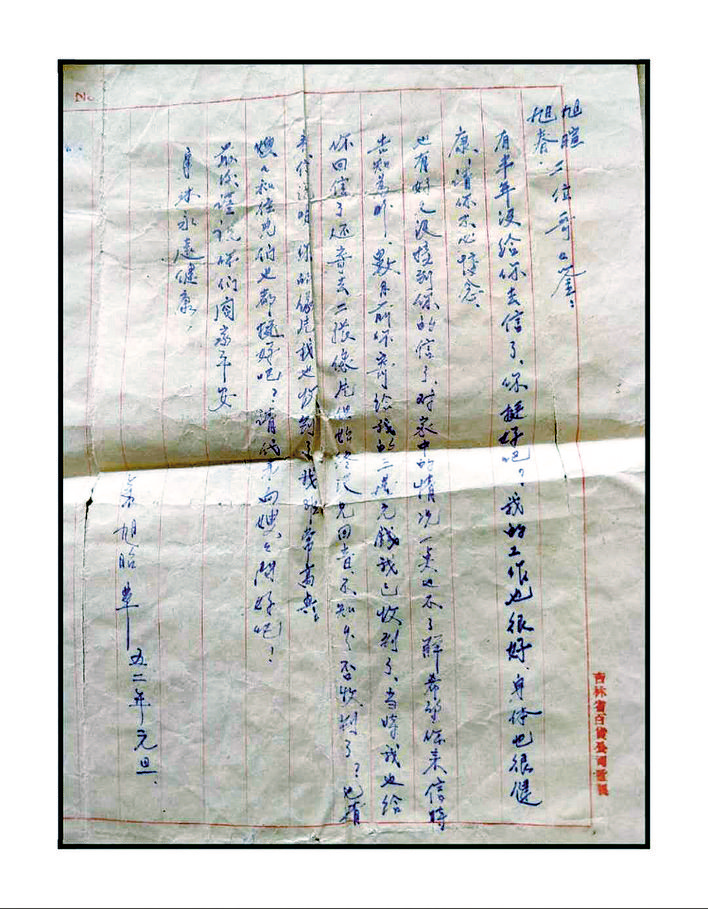 旭暄
旭春 二位哥々鉴：
有半年没给你去信了、你挺好吧？我的工作也很好、身体也很健
康、请你不必惦念、
也有好久没接到你的信了、对家中的情况一点也不了解希望你来信时
告知是盼、数月前你寄给我的三万元钱我已收到了、当时我也给
你回信了还寄去二张像片但始终没见回音不知是否收到了？也有
来信说明 你的像片我也收到了我非常高兴
嫂々和侄儿们也都挺好吧？请代弟向嫂々问好吧！
最后谨祝你们阖家平安
身体永远健康、
旭昭 草 五二年元旦、
吉林省百货公司
No